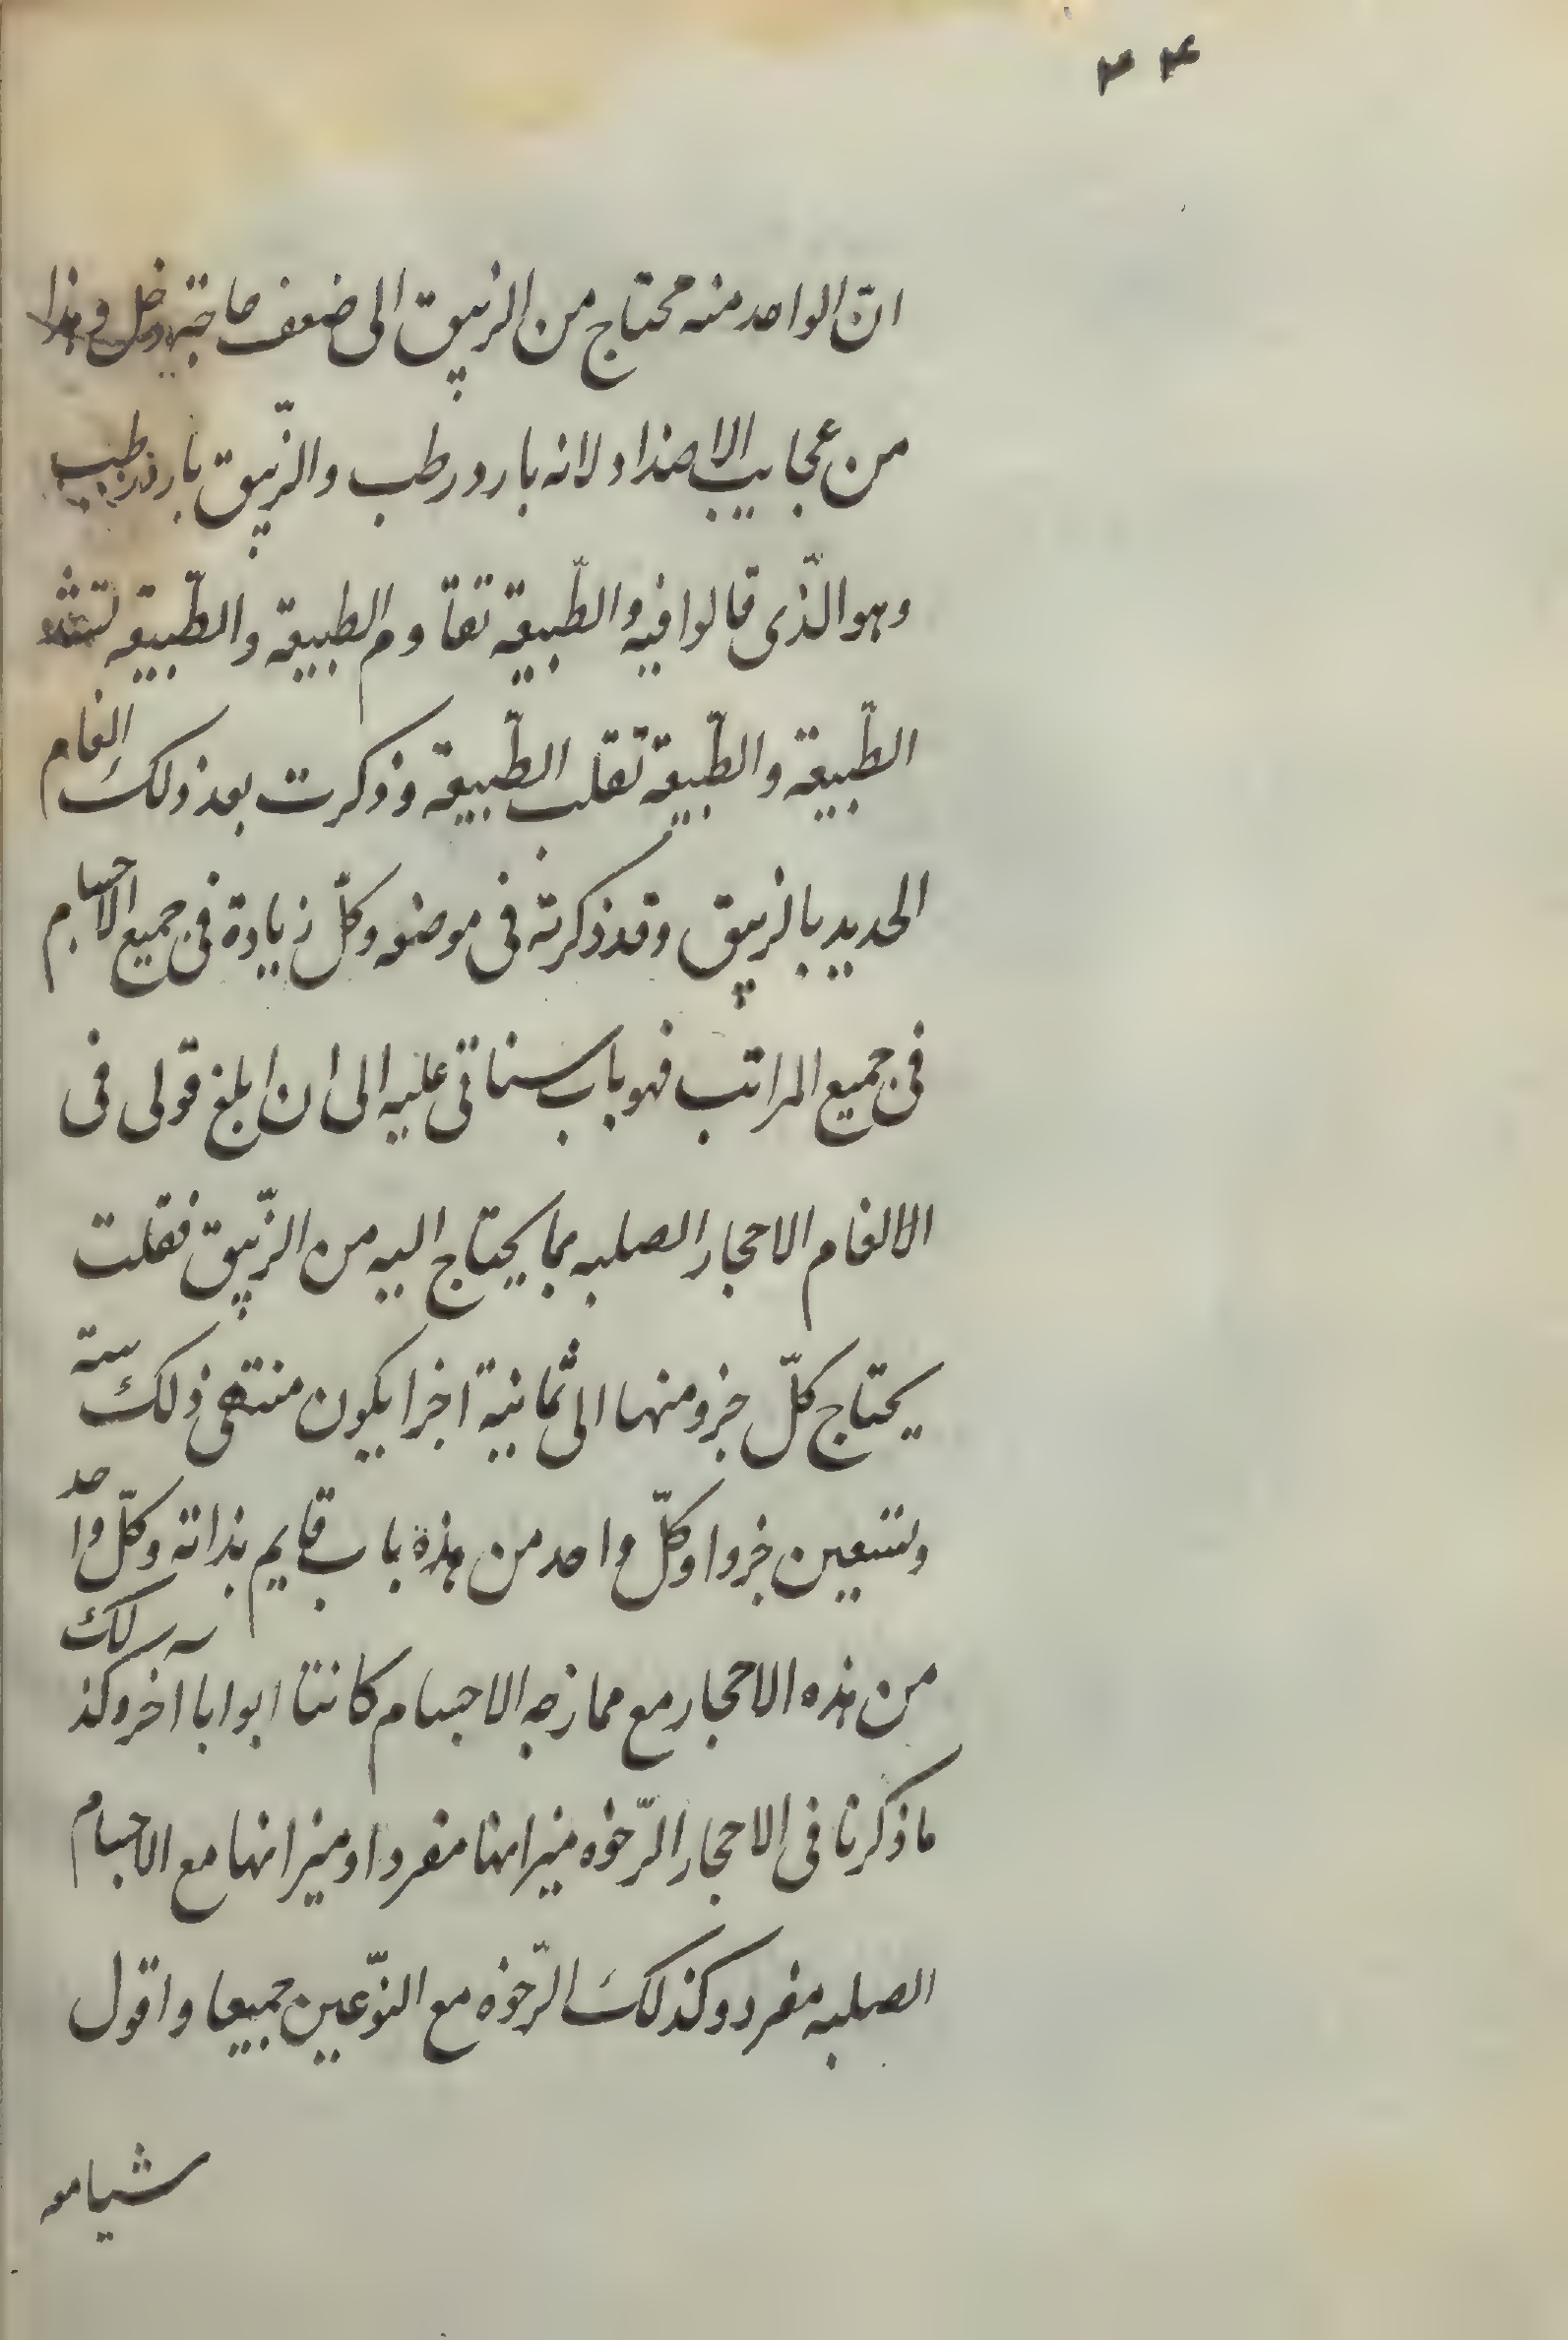 ٣٤
انّ الواحد منه محتاج من الزيبق الى ضعف وهذا
من عجايب الاضداد لانه بارد ورطب والزّيبق بارد رطب
وهو الّذى قالوا فيه والطّبيعة تقاوم الطبيعة والطّبيعة
الطّبيعة والطّبيعة تقلب الطّبيعة وذكرت بعد ذلك الغام
الحديد بالزيبق وقد ذكرته فى موضعه وكلّ زيادة فى جميع الاجسام
فى جميع المراتب فهو باب سناتى عليه الى ان ابلغ قولى فى
الالغام الاحجار الصلبه بما يحتاج اليه من الزّيبق فقلت
يحتاج كلّ جزو منها الى ثمانية اجزا يكون منتهى ذلك ستة
وتسعين جزوا وكلّ واحد من هذة باب قايم بذاته وكلّ واحد
من هذه الاحجار مع ممازجه الاجسام كانتا ابوابا آخر وكذلك
ما ذكرنا فى الاحجار الرّخوه ميزانها مفردا وميزانها مع الاجسام
الصلبه مفرد وكذلك الرّخوه مع النوّعين جميعا واقول
شيامه